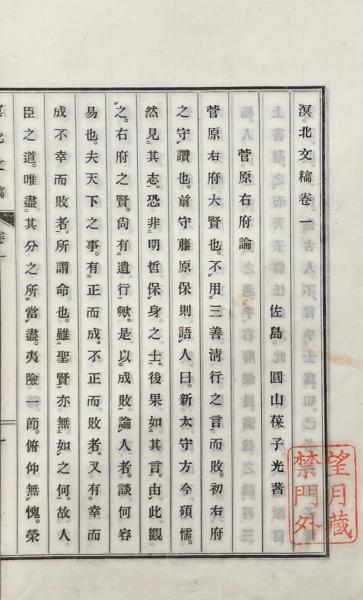 溟北文稿卷一
佐島。圓山葆子光著
菅原右府論
菅原右府大賢也。不用三善淸行之言而敗。初右府
之守讚也。前守藤原保則語人曰。新太守方今碩儒。
然見其志。恐非明哲保身之士。後果如其言。由此觀
之。右府之賢。尙有遺行歟。是以成敗論人者。談何容
易也。夫天下之事。有正而成。不正而敗者。又有幸而
成不幸而敗者。所謂命也。雖聖賢亦無如之何。故人
臣之道。唯盡其分之所當盡。夷險一節。俯仰無愧。榮
望月藏
禁門外